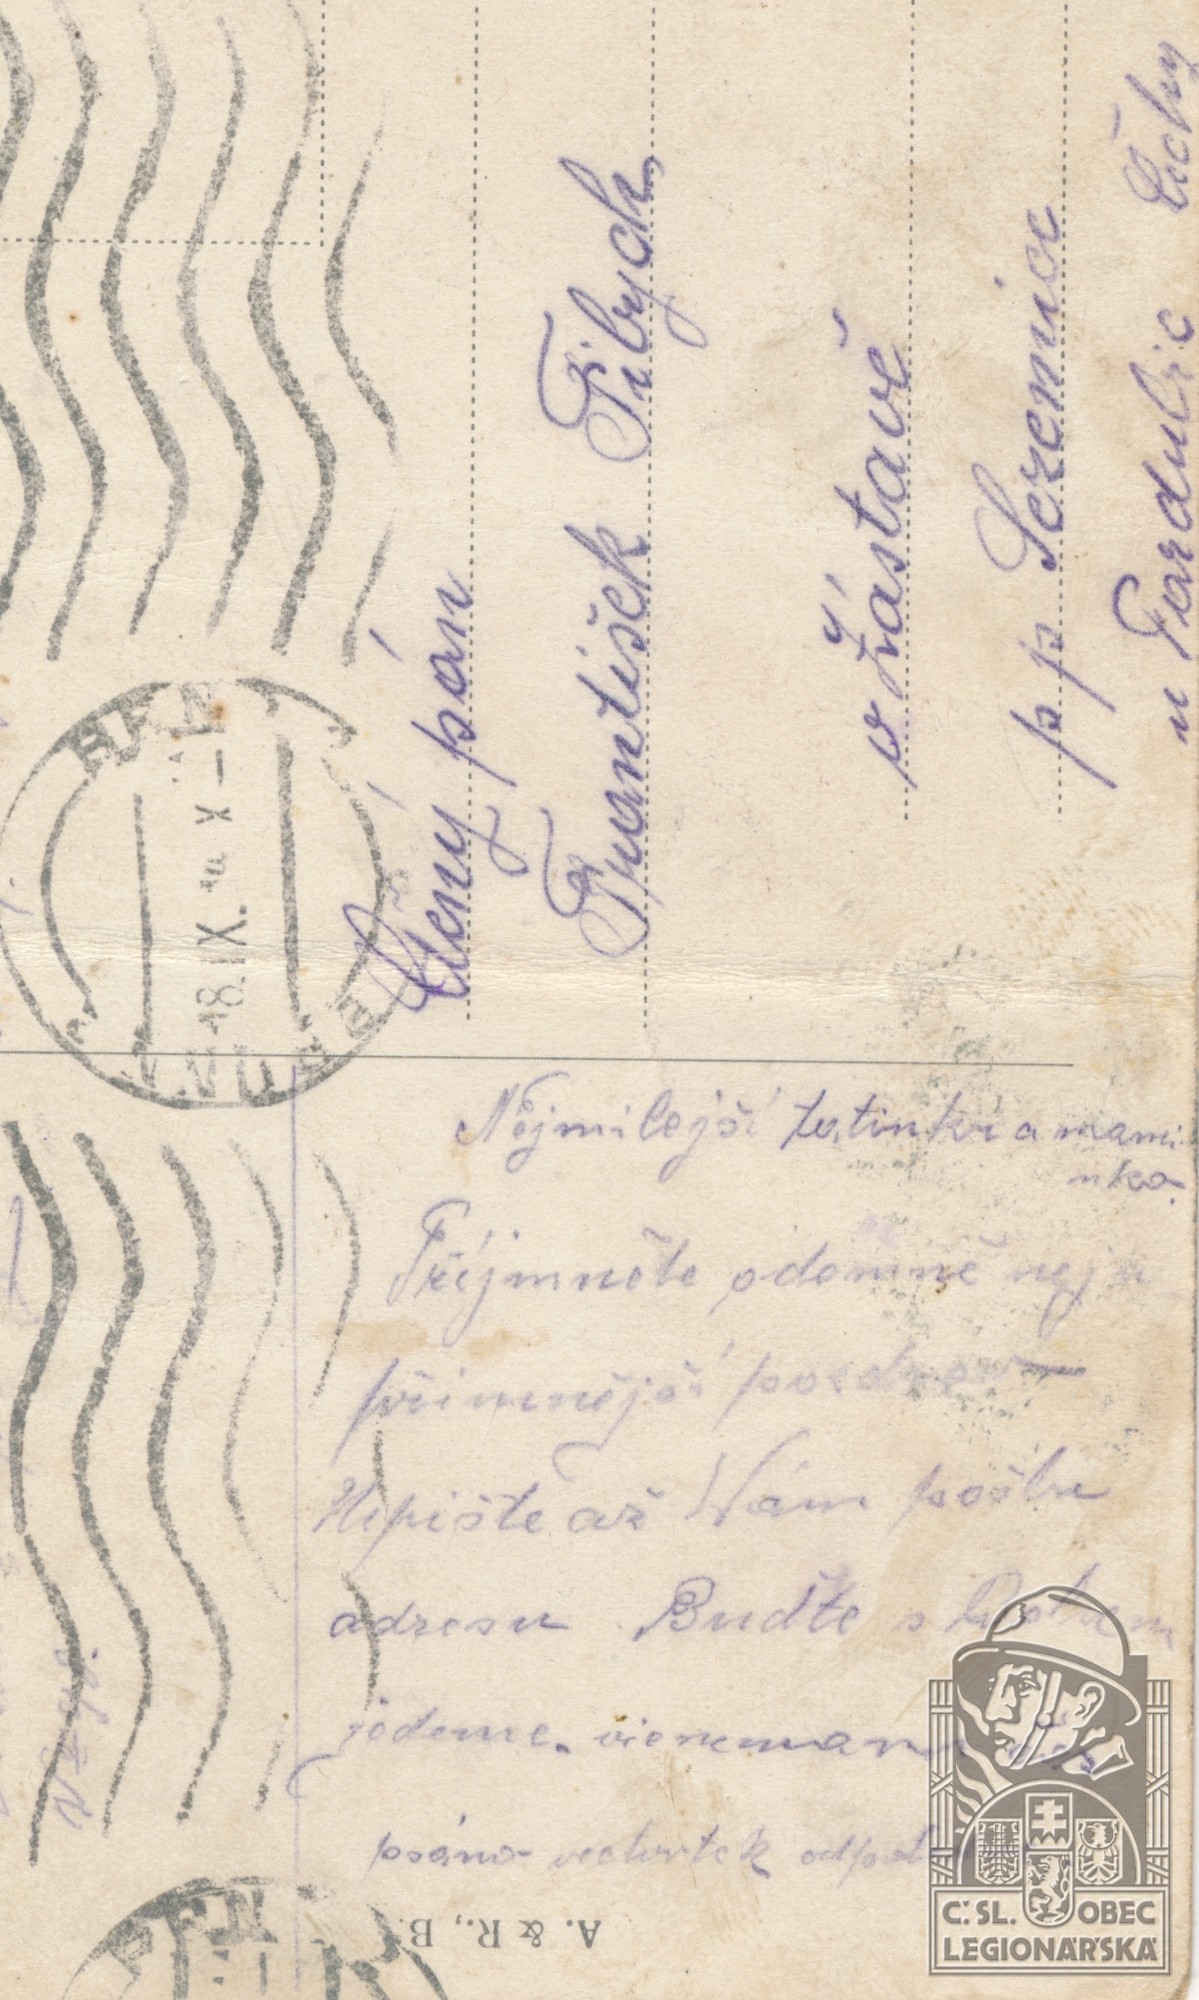 Ctený pán
František Pibych
v Zástavě
p p Sezemice
u Pardubic Čechy
BRN
18. IX.
X–
Nejmilejší tatinku a mami
nko.
Přijmněte odemně nej
přimnější pozdrav
Nepište až Vám pošlu
adresu Buďte s Bohem
jedeme.
psáno odpol
A. & R., B.
Č. SL. OBEC
LEGIONÁŘSKÁ